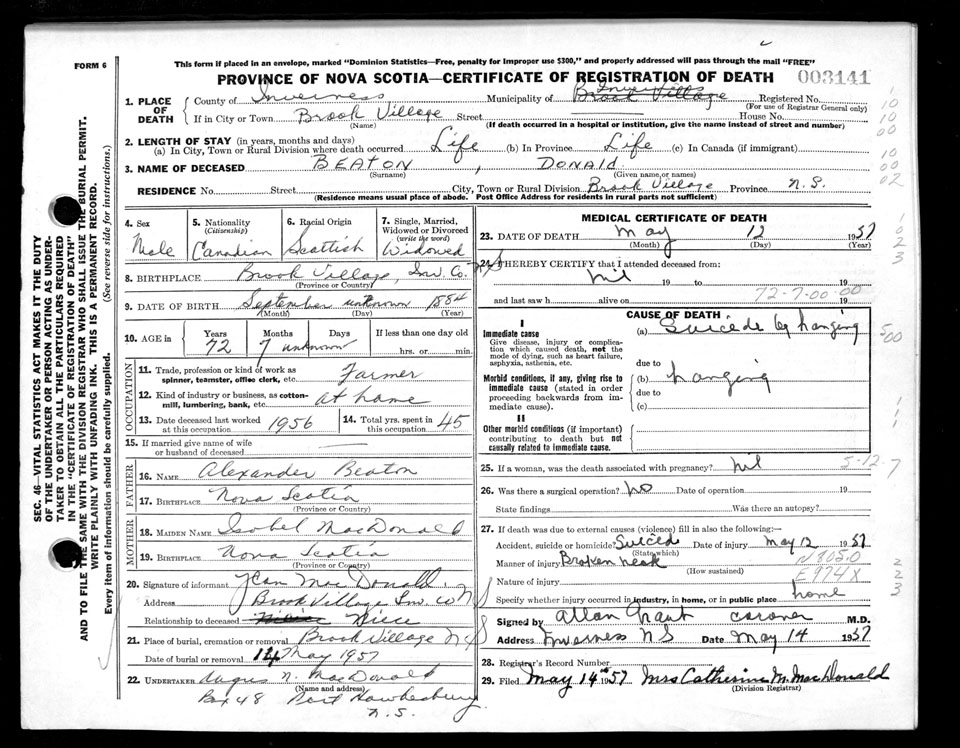 FORM 6
This form if placed in an envelope, marked "Dominion Statistics—Free, penalty for improper use $300," and properly addressed will pass through the mail "FREE"
PROVINCE OF NOVA SCOTIA—CERTIFICATE OF REGISTRATION OF DEATH 003141
1. PLACE OF DEATH County of Inverness Municipality of Inverness Brook Village Registered No.
(For use of Registrar General only)
If in City or Town Brook Village Street House No.
(Name) (If death occurred in a hospital or institution, give the name instead of street and number)
2. LENGTH OF STAY (in years, months and days)
(a) In City, Town or Rural Division where death occurred Life (b) In Province Life (c) In Canada (if immigrant)
3. NAME OF DECEASED BEATON, DONALD
(Surname) (Given name or names)
RESIDENCE No. Street City, Town or Rural Division Brook Village Province N.S.
(Residence means usual place of abode. Post Office Address for residents in rural parts not sufficient)
SEC. 46—VITAL STATISTICS ACT MAKES IT THE DUTY
OF THE UNDERTAKER OR PERSON ACTING AS UNDER-
TAKER TO OBTAIN ALL THE PARTICULARS REQUIRED
IN THE "CERTIFICATE OF REGISTRATION OF DEATH"
AND TO FILE THE SAME WITH THE DIVISION REGISTRAR WHO SHALL ISSUE THE BURIAL PERMIT.
WRITE PLAINLY WITH UNFADING INK. THIS IS A PERMANENT RECORD.
Every item of information should be carefully supplied. (See reverse side for instructions.)
4. Sex Male
5. Nationality (Citizenship) Canadian
6. Racial Origin Scottish
7. Single, Married, Widowed or Divorced (write the word) Widowed
8. BIRTHPLACE Brook Village, Inv. Co. N.S.
(Province or Country)
9. DATE OF BIRTH September unknown 1884
(Month) (Day) (Year)
10. AGE in Years 72 Months 7 Days unknown If less than one day old hrs. or min.
OCCUPATION
11. Trade, profession or kind of work as spinner, teamster, office clerk, etc. Farmer
12. Kind of industry or business, as cotton-mill, lumbering, bank, etc. at home
13. Date deceased last worked at this occupation 1956
14. Total yrs. spent in this occupation 45
15. If married give name of wife or husband of deceased
FATHER
16. NAME Alexander Beaton
17. BIRTHPLACE Nova Scotia
(Province or Country)
MOTHER
18. MAIDEN NAME Isobel MacDonald
19. BIRTHPLACE Nova Scotia
(Province or Country)
20. Signature of informant Jean MacDonald
Address Brook Village Inv. Co N.S.
Relationship to deceased Niece
21. Place of burial, cremation or removal Brook Village N.S
Date of burial or removal 14 May 1957
22. UNDERTAKER Angus N. MacDonald
(Name and address)
Box 48 Port Hawkesbury
N.S.
MEDICAL CERTIFICATE OF DEATH
23. DATE OF DEATH May 12 1957
(Month) (Day) (Year)
24. I HEREBY CERTIFY that I attended deceased from:
nil 19 to 19
72-7-00-00
and last saw h alive on 19
CAUSE OF DEATH
I
Immediate cause (a) Suicide by hanging
Give disease, injury or complication which caused death, not the mode of dying, such as heart failure, asphyxia, asthenia, etc.
due to
Morbid conditions, if any, giving rise to immediate cause (stated in order proceeding backwards from immediate cause).
(b) hanging
due to
(c)
II
Other morbid conditions (if important) contributing to death but not causally related to immediate cause.
25. If a woman, was the death associated with pregnancy? nil 5-12-7
26. Was there a surgical operation? no Date of operation 19
State findings Was there an autopsy?
27. If death was due to external causes (violence) fill in also the following:—
Accident, suicide or homicide? Suicide Date of injury May 12 1957
(State which)
Manner of injury Broken neck N805.0
(How sustained)
Nature of injury E974X
Specify whether injury occurred in industry, in home, or in public place home
Signed by Allan Grant coroner M.D.
Address Inverness N S Date May 14 1957
28. Registrar's Record Number
29. Filed May 14th 1957 Mrs Catherine M. MacDonald
(Division Registrar)